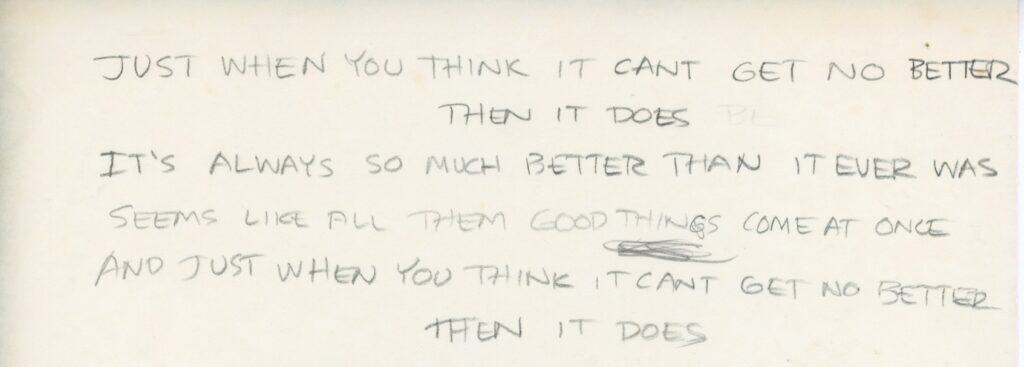 JUST WHEN YOU THINK IT CANT GET NO BETTER
THEN IT DOES BE
IT'S ALWAYS SO MUCH BETTER THAN IT EVER WAS
SEEMS LIKE ALL THEM GOOD THINGS COME AT ONCE
AND JUST WHEN YOU THINK IT CANT GET NO BETTER
THEN IT DOES